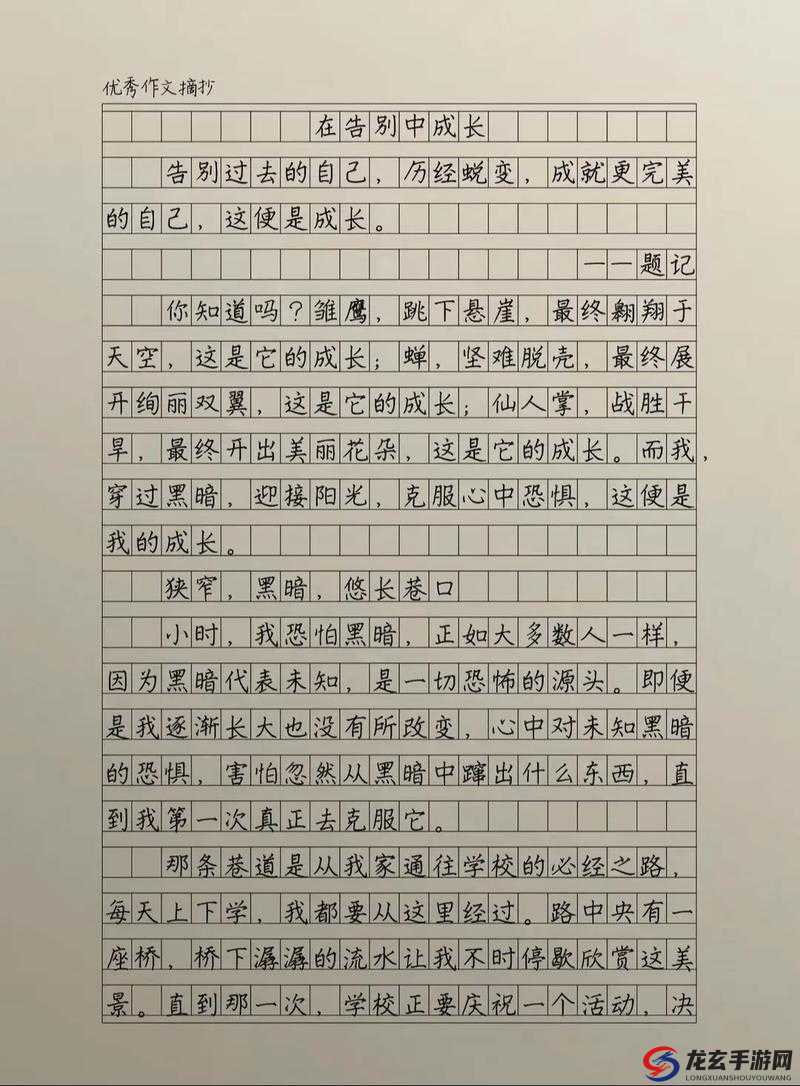 优秀作文摘抄
在告别中成长
告别过去的自己，历经蜕变，成就更完美
的自己，这便是成长。
——题记
你知道吗？雏鹰，跳下悬崖，最终翱翔于
天空，这是它的成长；蝉，坚难脱壳，最终展
开绚丽双翼，这是它的成长；仙人掌，战胜干
旱，最终开出美丽花朵，这是它的成长。而我，
穿过黑暗，迎接阳光，克服心中恐惧，这便是
我的成长。
狭窄，黑暗，悠长巷口
小时，我恐怕黑暗，正如大多数人一样，
因为黑暗代表未知，是一切恐怖的源头。即便
是我逐渐长大也没有所改变，心中对未知黑暗
的恐惧，害怕忽然从黑暗中蹿出什么东西，直
到我第一次真正去克服它。
那条巷道是从我家通往学校的必经之路，
每天上下学，我都要从这里经过。路中央有一
座桥，桥下潺潺的流水让我不时停歇欣赏这美
景。直到那一次，学校正要庆祝一个活动，决
龙玄手游网
LONGXUANSHOUYOUWANG